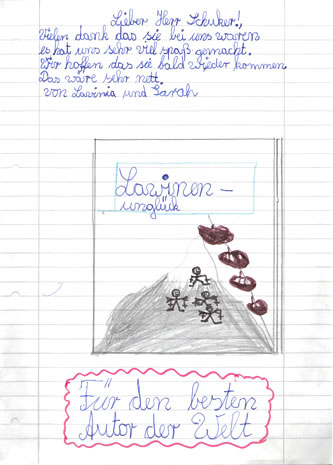 Lieber Herr Schuker!,
Vielen dank das sie bei uns waren
es hat uns sehr viel spaß gemacht.
Wir hoffen das sie bald wieder kommen
Das wäre sehr nett.
von Lavinia und Sarah
Lawinen-
unglück
Für den besten
Autor der Welt